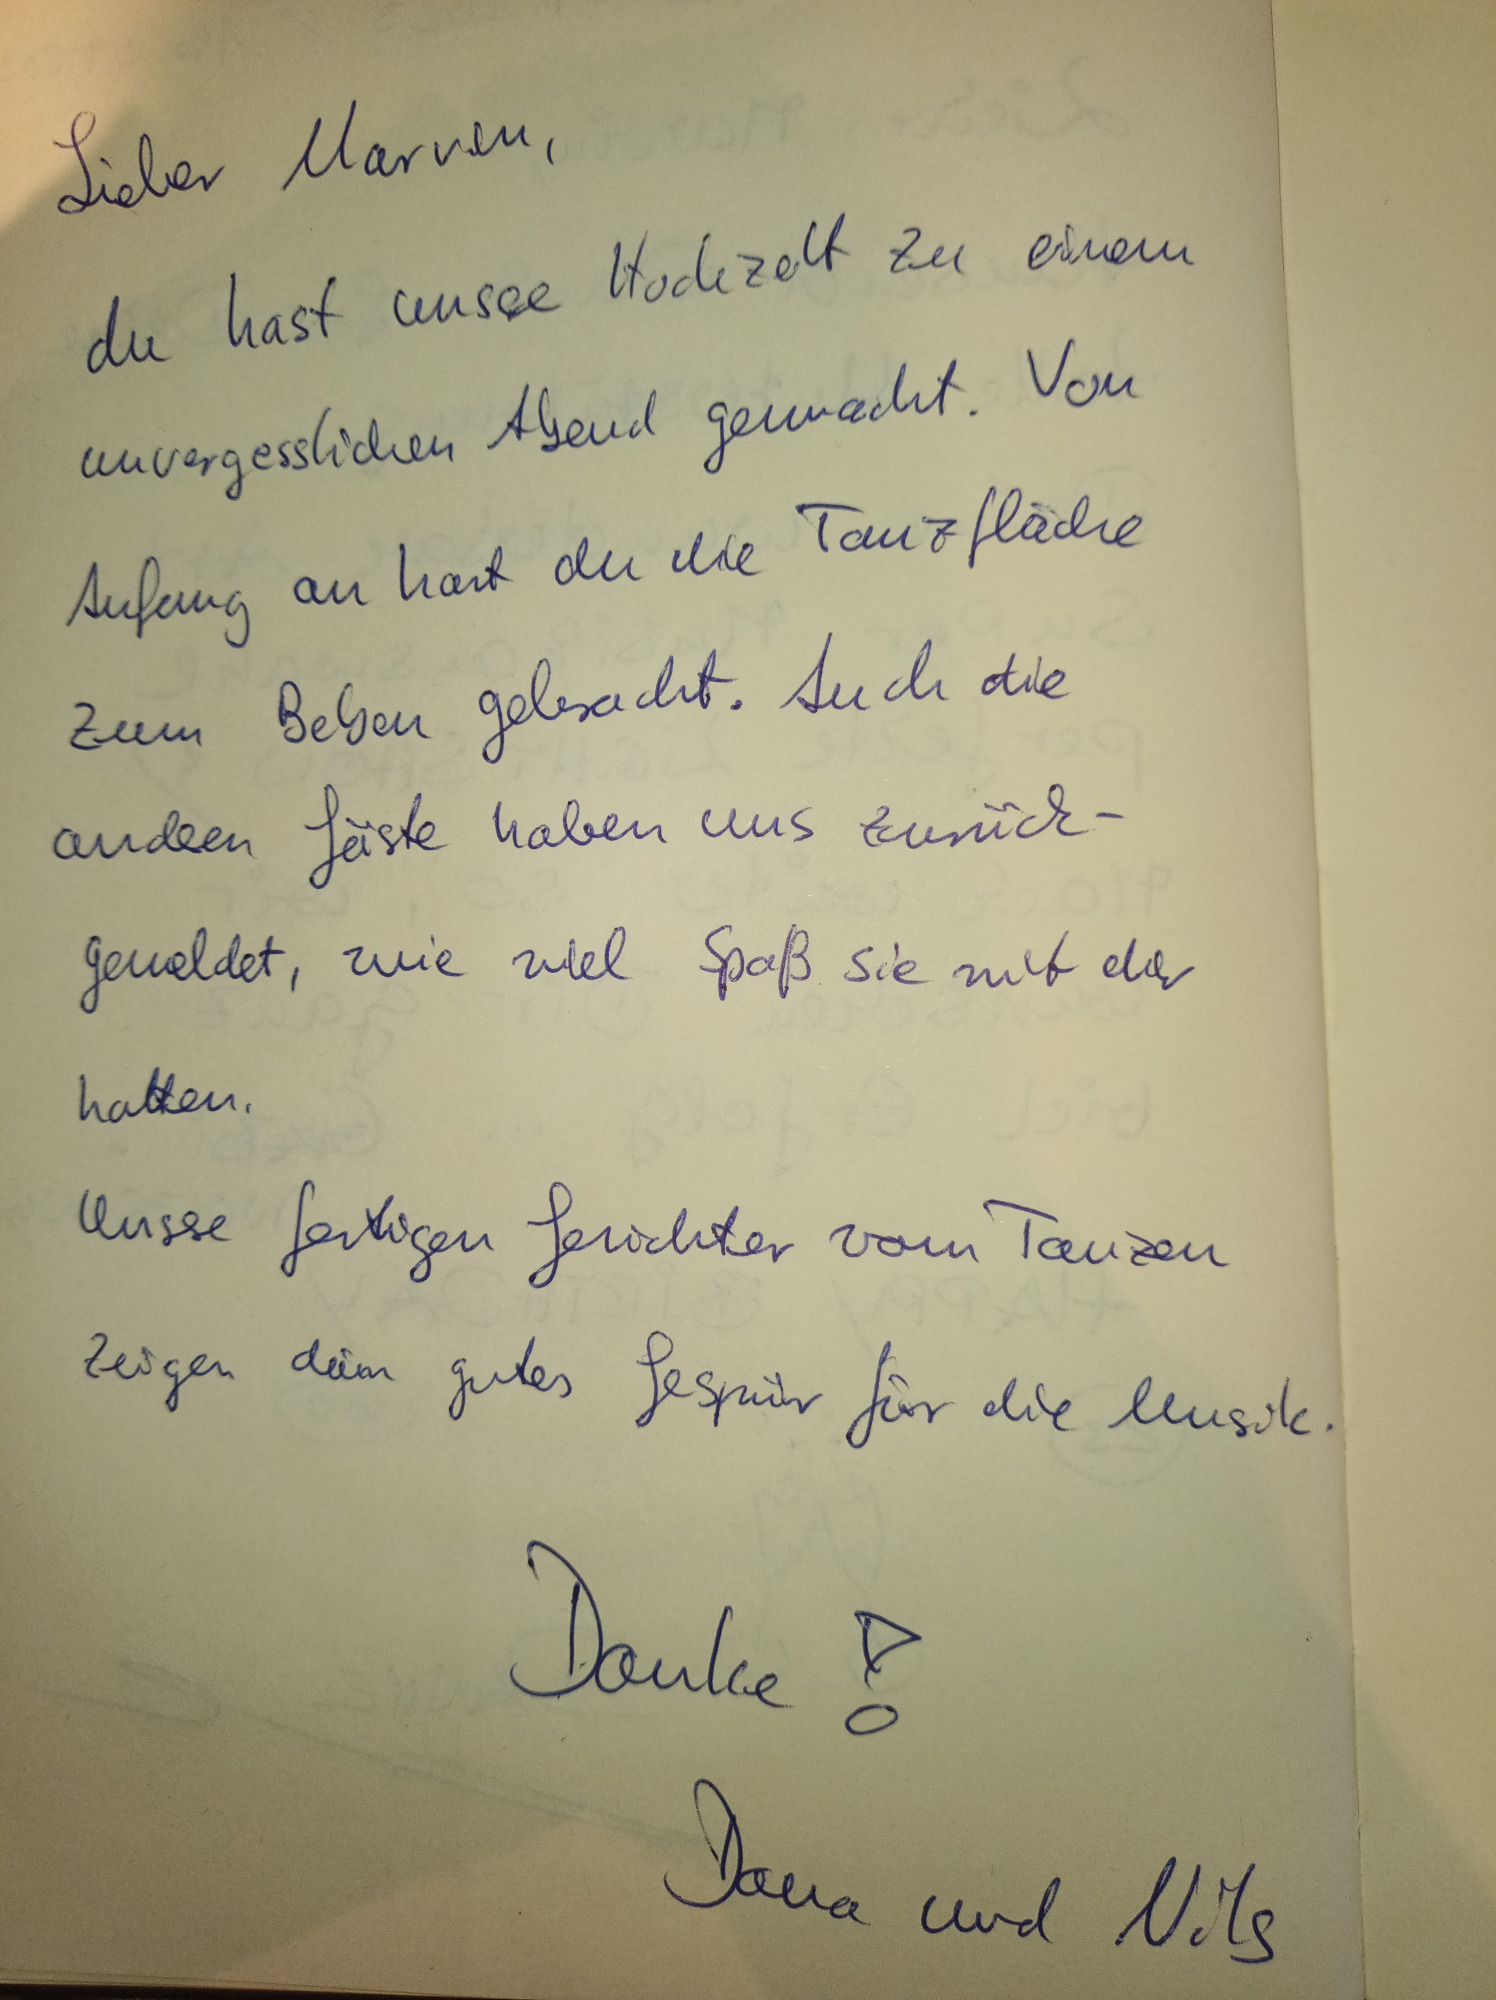 Lieber Marven,
du hast unsere Hochzeit zu einem
unvergesslichen Abend gemacht. Von
Anfang an hast du die Tanzfläche
zum Beben gebracht. Auch die
anderen Gäste haben uns zurück-
gemeldet, wie viel Spaß sie mit dir
hatten.
Unsere fertigen Gesichter vom Tanzen
zeigen dein gutes Gespür für die Musik.
Danke!
Dana und Nils